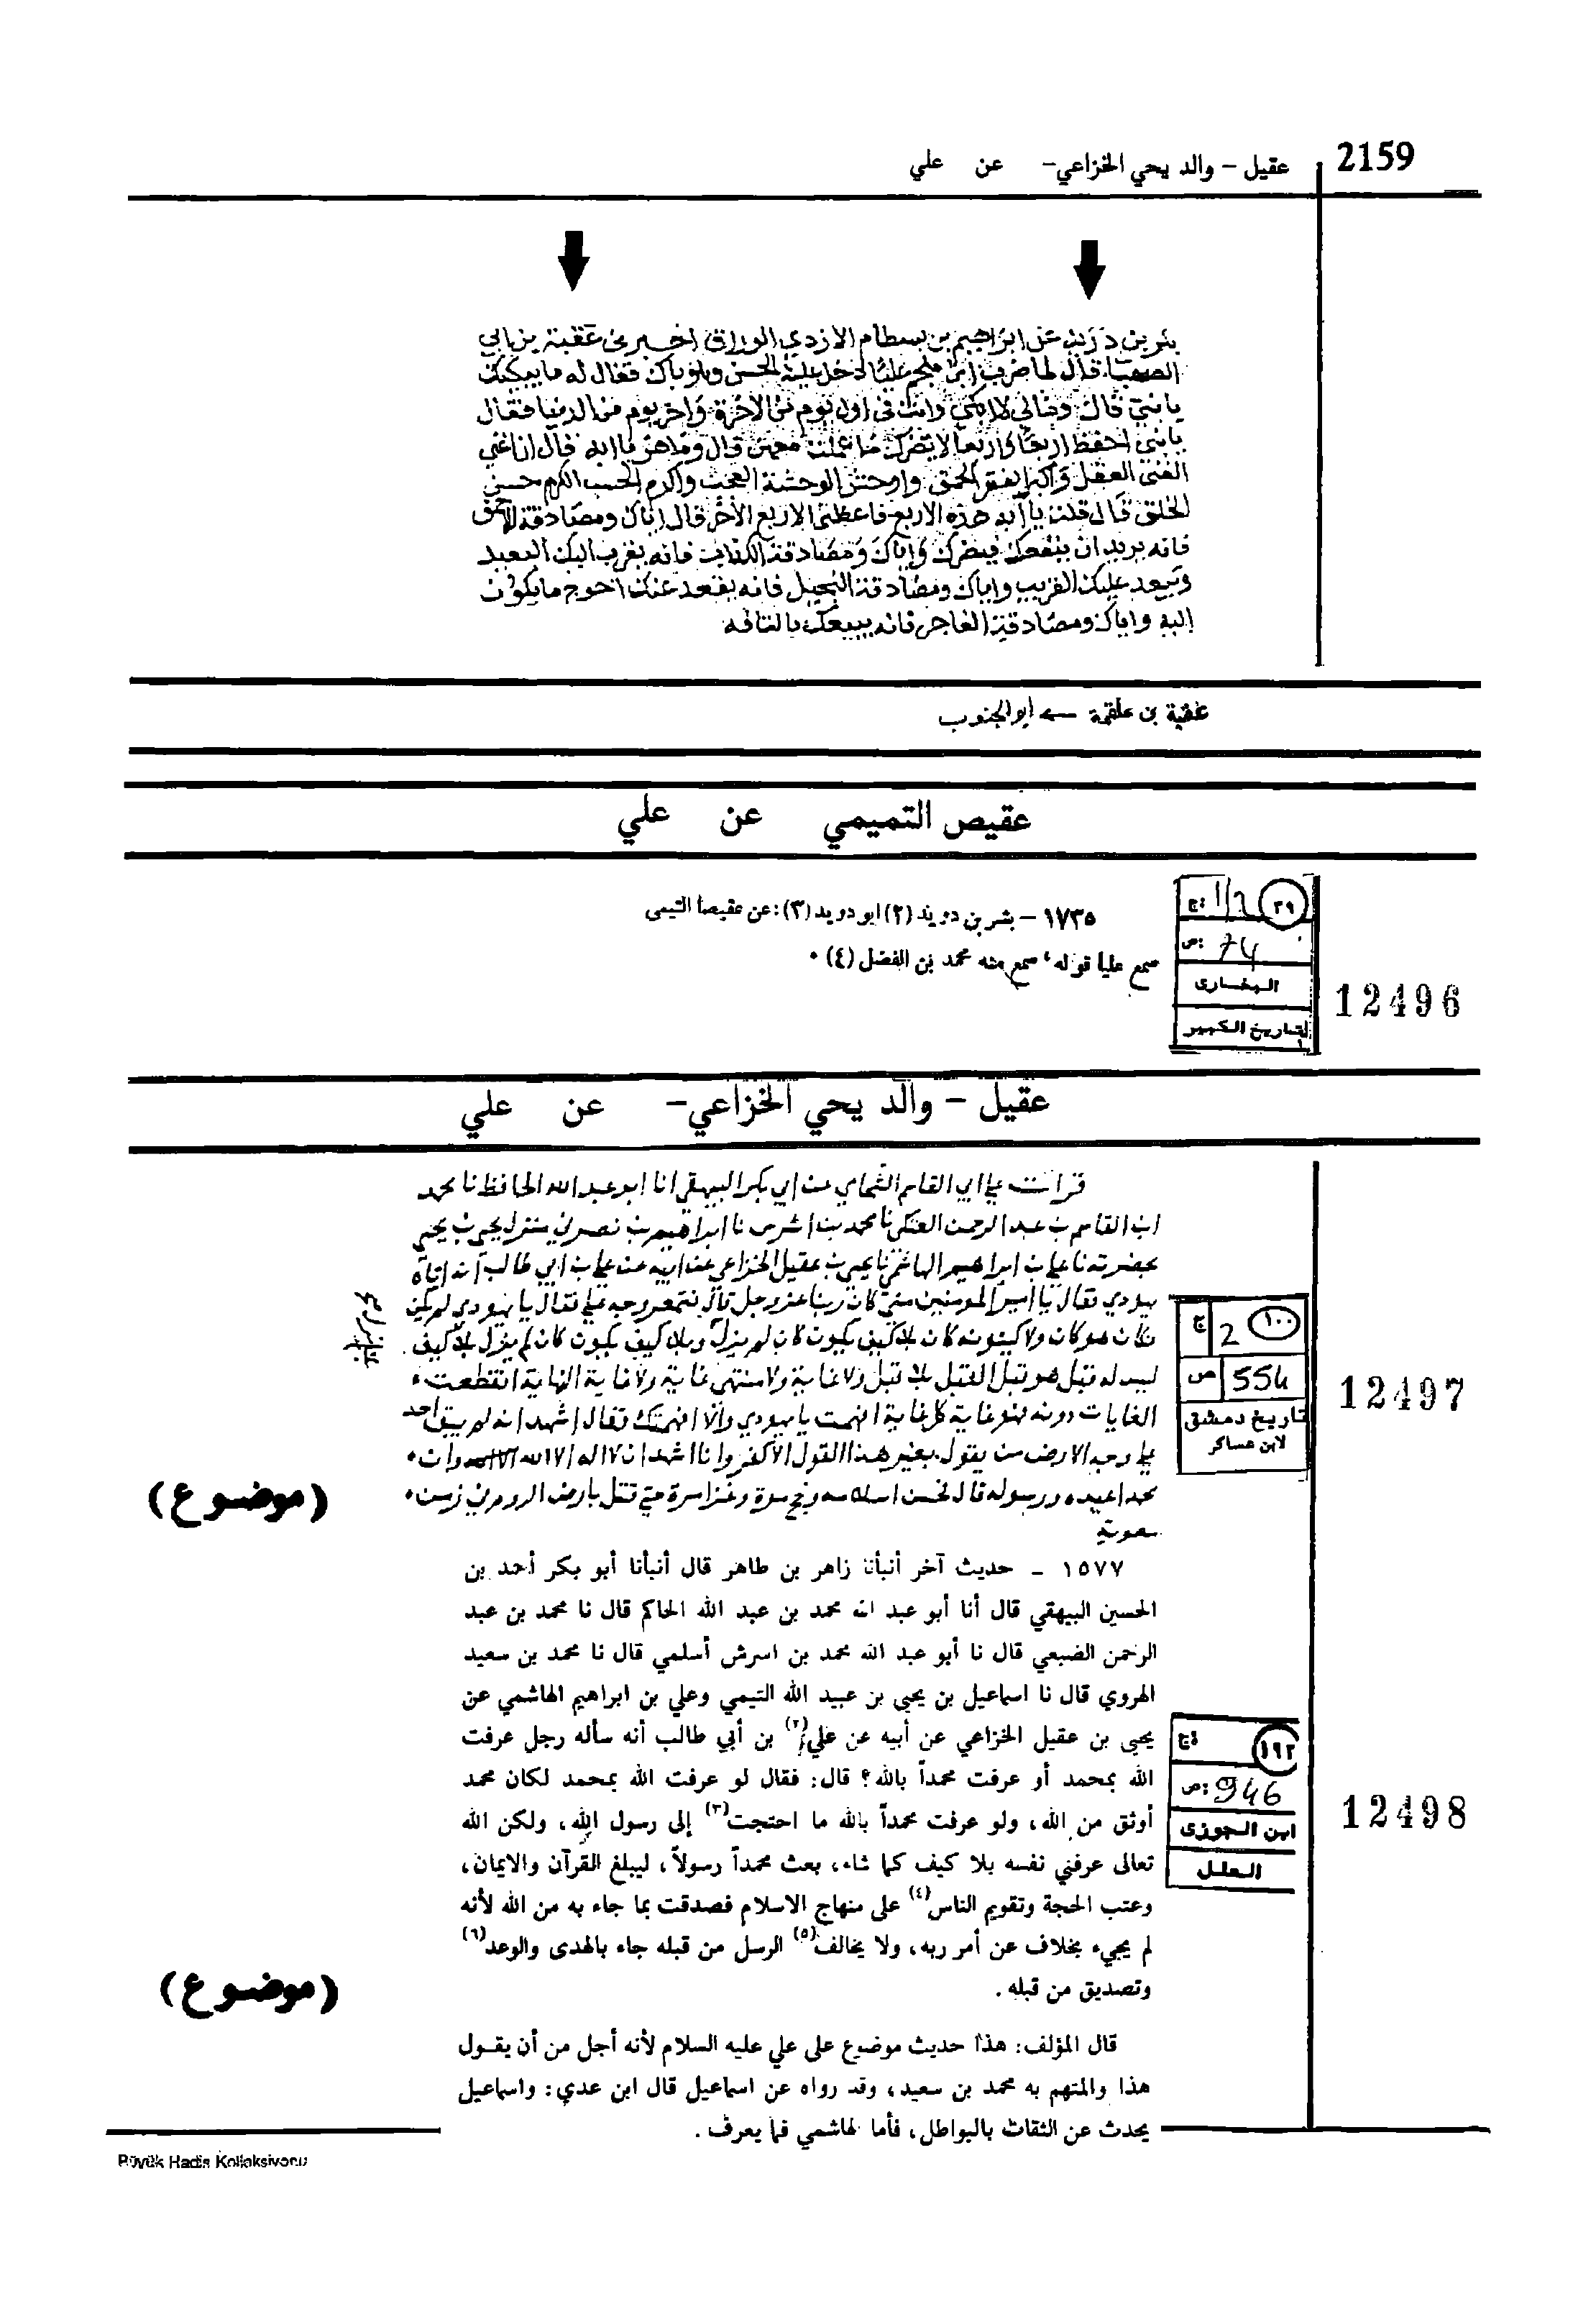 2159
عقيل - والد يحي الخزاعي- عن علي
قال لما ضرب ابن ملجم عليا دخل عليه الحسن وهو باك فقال له ما يبكيك
يا بني قال ومالي لا ابكي وانت في اول يوم من الاخرة واخر يوم من الدنيا فقال
يا بني احفظ اربعا واربعا لا يضرك ما عملت معهن قال وما هن يا ابه قال ان اغنى
الغنى العقل واكبر الفقر الحمق واوحش الوحشة العجب واكرم الحسب الكرم حسن
الخلق قال قلت يا ابه هذه الاربع فاعطني الاربع الاخر قال اياك ومصادقة الاحمق
فانه يريد ان ينفعك فيضرك واياك ومصادقة الكذاب فانه يقرب اليك البعيد
ويبعد عليك القريب واياك ومصادقة البخيل فانه يقعد عنك احوج ما يكون
اليه واياك ومصادقة الفاجر فانه يبيعك بالتافه
عقبة بن علقمة ← أبو الجنوب
عقيص التميمي عن علي
١٧٣٥ - بشر بن دويد (٢) ابو دويد (٣): عن عقيصا التيمى
سمع عليا قوله، سمع منه محمد بن الفضل (٤) ٠
٣٩ ج: 1/2
ص: 74
البخارى
التاريخ الكبير
12496
عقيل - والد يحي الخزاعي- عن علي
قرات على ابي القاسم الشحامي عن ابي بكر البيهقي انا ابو عبد الله الحافظ نا محمد
ابن القاسم بن عبد الرحمن العتكي نا محمد بن اشرس نا ابراهيم بن نصر في منزل يحيى بن يحيى
بحضرته نا علي بن ابراهيم الهاشمي نا يحيى بن عقيل الخزاعي عن ابيه عن علي بن ابي طالب انه اتاه
يهودي فقال يا امير المومنين متى كان ربنا عز وجل قال فتمعر وجه علي فقال يا يهودي لم يكن
فكان هو كان ولا كينونه كان بلا كيف يكون كان لم يزل وبلا كيف يكون كان لم يزل بلا كيف
ليس له قبل هو قبل القبل بلا قبل ولا غاية ولا منتهى غاية ولا غاية اليها غاية انقطعت
الغايات دونه فهو غاية كل غاية افهمت يا يهودي والا افهمتك فقال اشهد انه لم يبق احد
على وجه الارض من يقول بغير هذا القول الا كفر وانا اشهد ان لا اله الا الله وان
محمدا عبده ورسوله قال فحسن اسلامه وحج مرة وغزا مرة حتى قتل بارض الروم في زمن
معوية
١٠٠ ج 2
ص 554
تاريخ دمشق
لابن عساكر
12497
(موضوع)
١٥٧٧ - حديث آخر أنبأنا زاهر بن طاهر قال أنبأنا أبو بكر أحمد بن
الحسين البيهقي قال أنا أبو عبد الله محمد بن عبد الله الحاكم قال نا محمد بن عبد
الرحمن الضبعي قال نا أبو عبد الله محمد بن اسرش أسلمي قال نا محمد بن سعيد
الهروي قال نا اسماعيل بن يحيى بن عبيد الله التيمي وعلي بن ابراهيم الهاشمي عن
يحيى بن عقيل الخزاعي عن أبيه عن علي(٢) بن أبي طالب أنه سأله رجل عرفت
الله بمحمد أو عرفت محمداً بالله؟ قال: فقال لو عرفت الله بمحمد لكان محمد
أوثق من الله، ولو عرفت محمداً بالله ما احتجت(٣) إلى رسول الله، ولكن الله
تعالى عرفني نفسه بلا كيف كما شاء، بعث محمداً رسولاً، ليبلغ القرآن والايمان،
وعتب الحجة وتقويم الناس(٤) على منهاج الاسلام فصدقت بما جاء به من الله لأنه
لم يجيء بخلاف عن أمر ربه، ولا يخالف(٥) الرسل من قبله جاء بالهدى والوعد(٦)
وتصديق من قبله .
١٩٢ ج:
ص: 946
ابن الجوزى
العلل
12498
(موضوع)
قال المؤلف: هذا حديث موضوع على علي عليه السلام لأنه أجل من أن يقول
هذا والمتهم به محمد بن سعيد، وقد رواه عن اسماعيل قال ابن عدي: واسماعيل
يحدث عن الثقات بالبواطل، فأما الهاشمي فما يعرف .
Büyük Hadis Kolleksiyonu